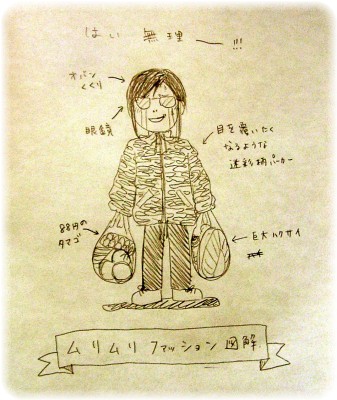 はい 無理ー!!!
オバン
くくり
眼鏡
目を覆いたく
なるような
迷彩柄パーカー
88円の
タマゴ
巨大ハクサイ
ムリムリファッション図解